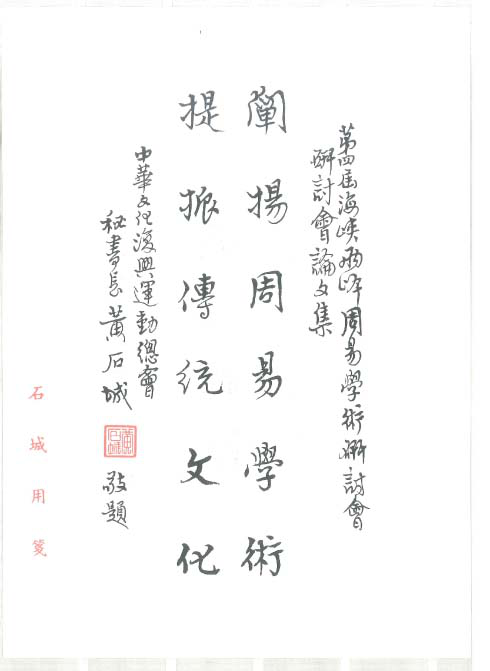 第四屆海峽兩岸周易學術研討會
研討會論文集
闡揚周易學術
提振傳統文化
中華文化復興運動總會
秘書長黃石城
敬題
黃石城
石城用箋